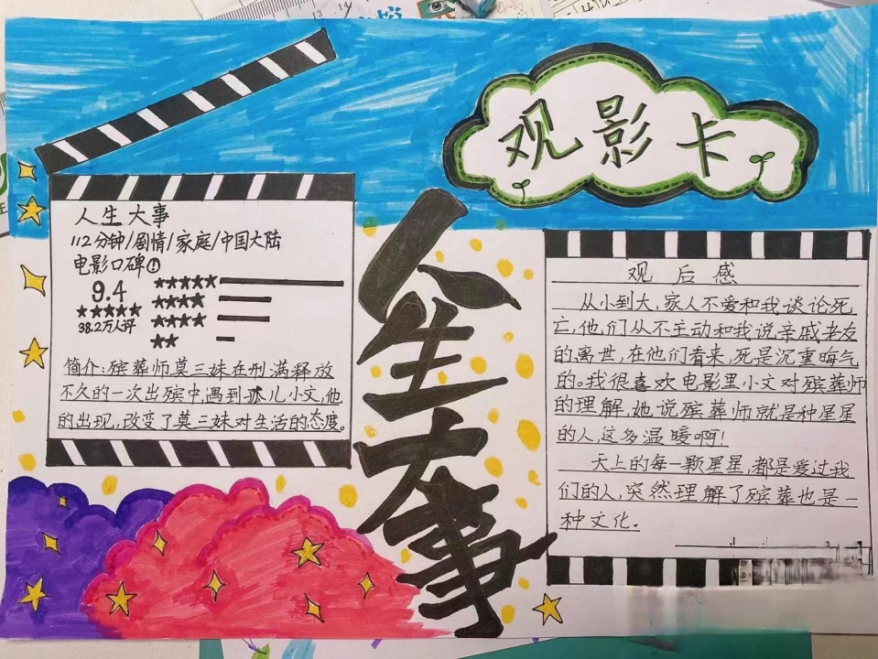 观影卡
人生大事
112分钟/剧情/家庭/中国大陆
电影口碑①
9.4
★★★★★
38.2万人评
★★★★★
★★★★
★★★★
★★
简介:殡葬师莫三妹在刑满释放
不久的一次出殡中,遇到孤儿小文,他
的出现,改变了莫三妹对生活的态度。
人生大事
观后感
从小到大,家人不爱和我谈论死
亡,他们从不主动和我说亲戚老友
的离世,在他们看来,死是沉重晦气
的。我很喜欢电影里小文对殡葬师
的理解,她说殡葬师就是种星星
的人,这多温暖啊!
天上的每一颗星星,都是爱过我
们的人,突然理解了殡葬也是一
种文化。